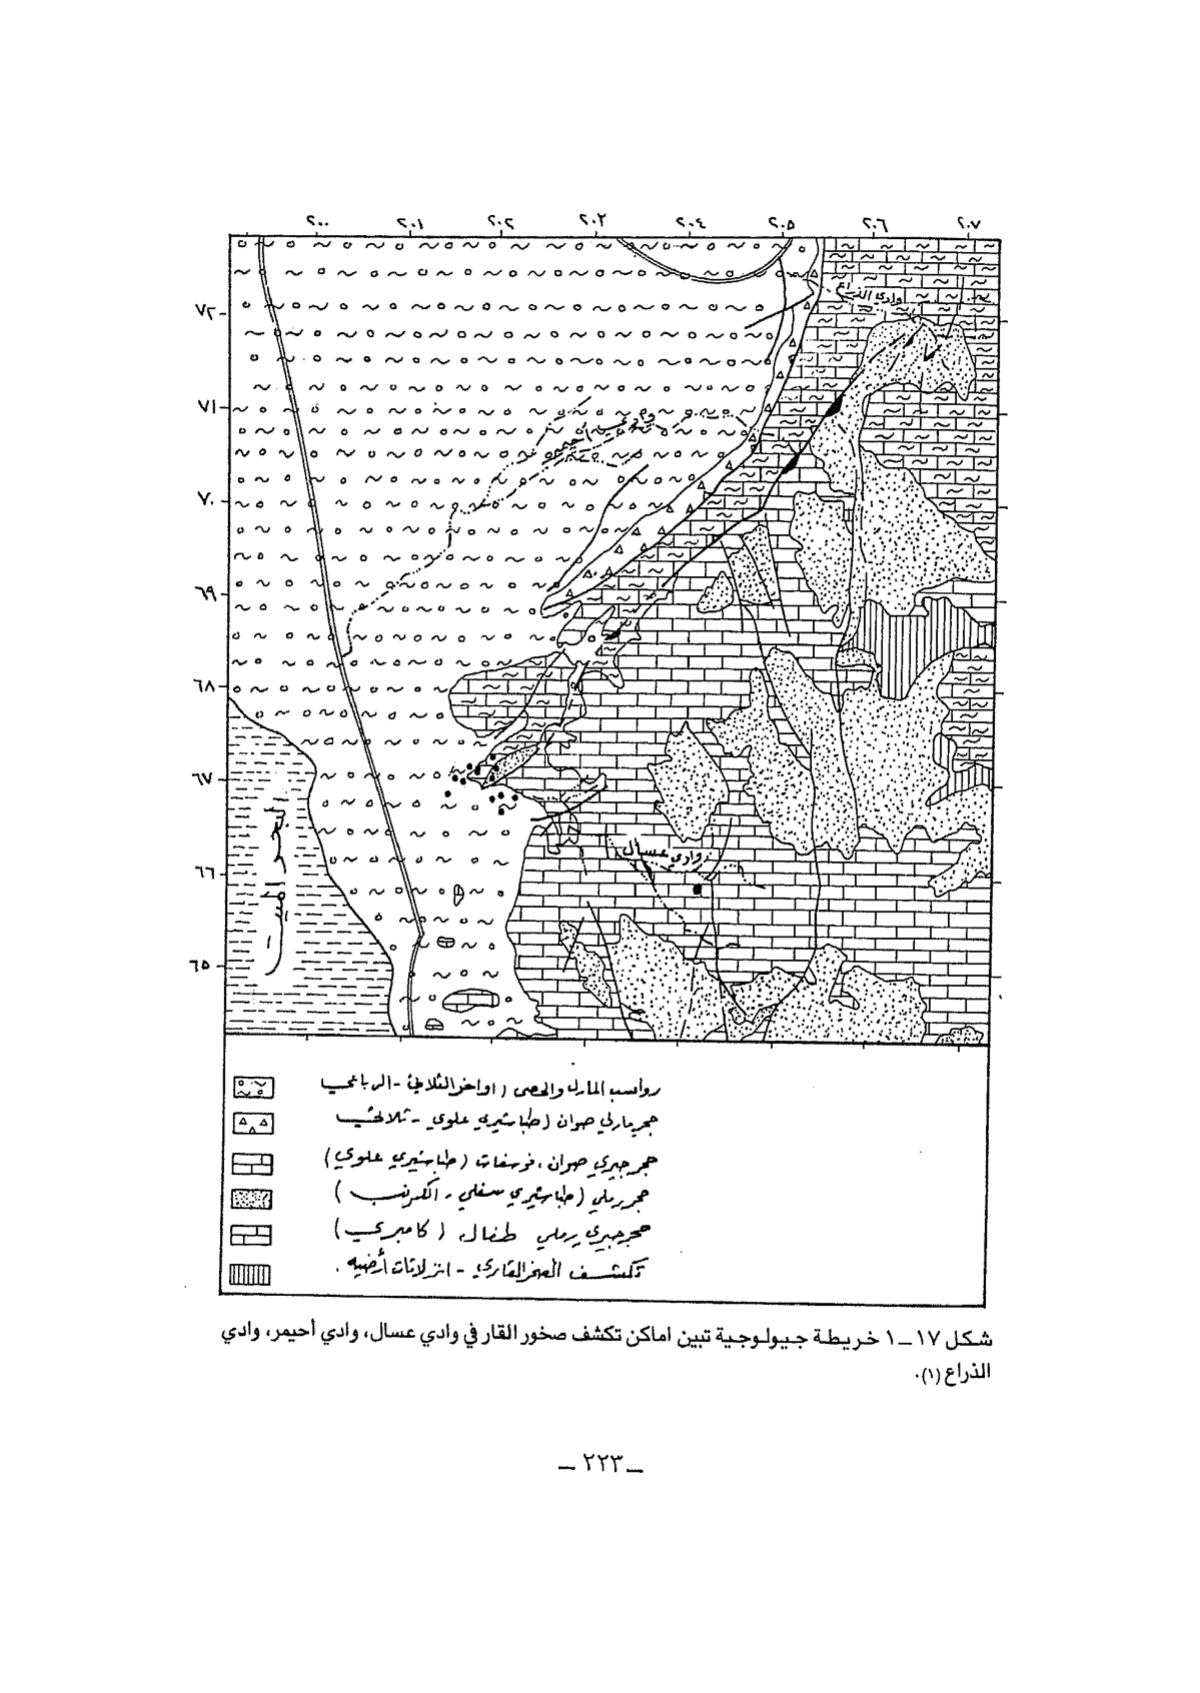 ٢٠٠ ٢٠١ ٢٠٢ ٢٠٣ ٢٠٤ ٢٠٥ ٢٠٦ ٢٠٧
٧٢
٧١
٧٠
٦٩
٦٨
٦٧
٦٦
٦٥
وادي الذراع
وادي احيمر
وادي عسال
البحر الميت
رواسب المارل والحصى (اواخر الثلاثي - الرباعي
حجر مارلي صوان (طباشيري علوي - ثلاثي
حجر جيري صوان، فوسفات (طباشيري علوي)
حجر رملي (طباشيري سفلي - الكرنب)
حجر جيري رملي طفال (كامبري)
تكشف الصخر القاري - انزلاقات أرضيه.
شكل ١٧ـ١ خريطة جيولوجية تبين اماكن تكشف صخور القار في وادي عسال، وادي أحيمر، وادي
الذراع (١).
ـ ٢٢٣ ـ